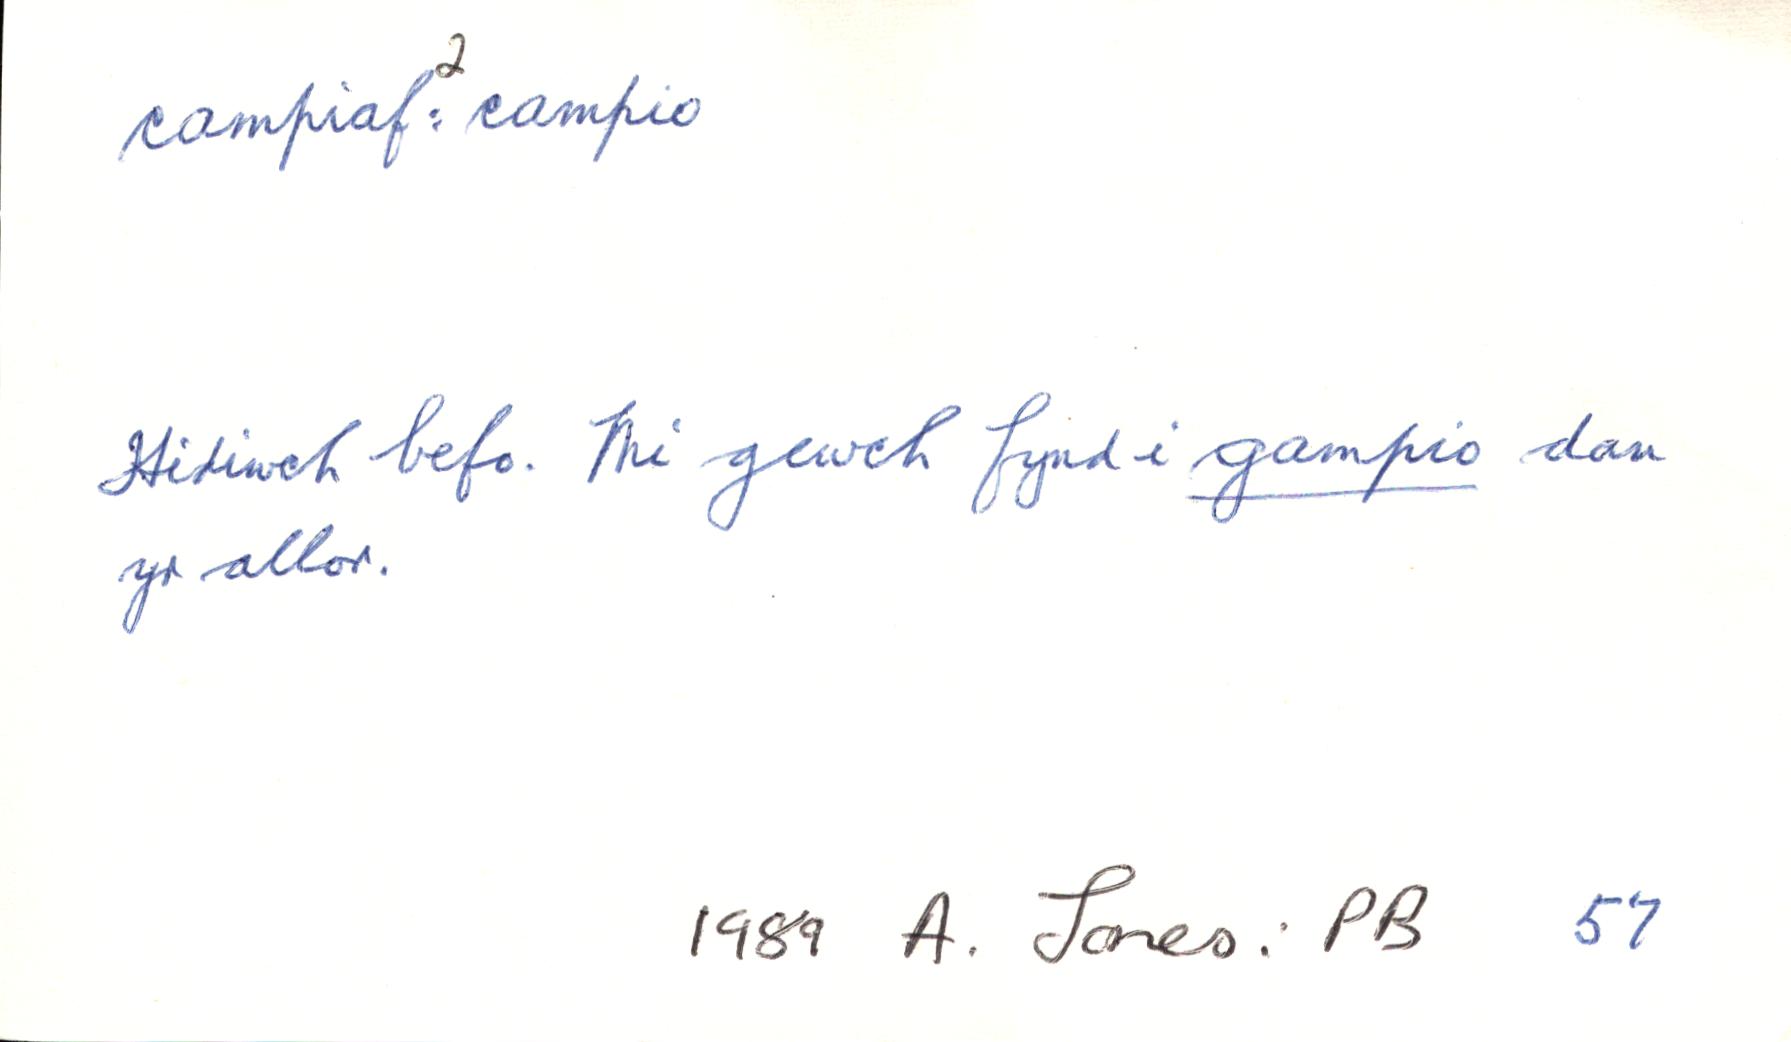 campiaf²: campio
Hitiwch befo. Mi gewch fynd i gampio dan
yr allor.
1989 A. Jones: PB 57